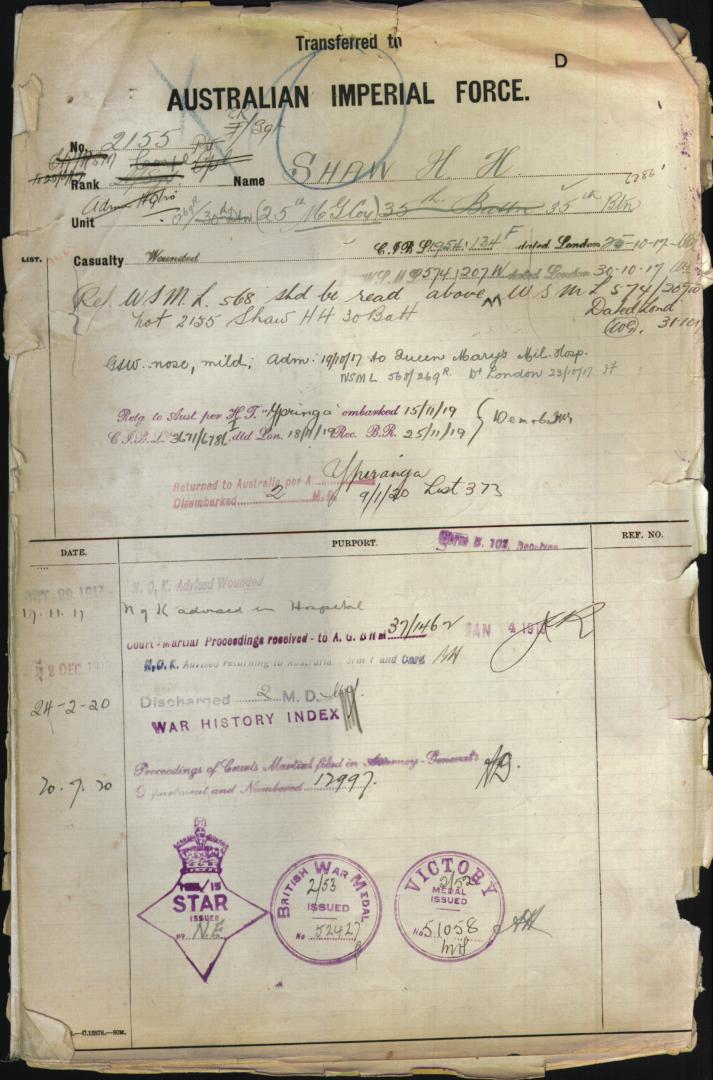 Transferred to
D
AUSTRALIAN IMPERIAL FORCE.
No. 2155 Pte
Rank Name SHAW H. H.
Unit (25th M G Coy) 35th Battn 35th Btn
C.I.B. L. 954/134F dated London 25-10-17
LIST. Casualty Wounded
W.S.M. L 574/207W dated London 30-10-17
Ref. W S M. L. 568 shd be read above W S M L 574/207W
not 2155 Shaw H H 30 Batt Dated Lond
31-10-17
GSW. nose, mild; Adm: 19/10/17 to Queen Mary's Mil. Hosp.
WSM L 568/269R. Dd London 23/10/17
Retg to Aust. per H.T. "Ypringa" embarked 15/11/19
C.I.B. L. 3671/678 dtd Lon. 18/11/19 Rec. B.R. 25/11/19
Returned to Australia per A Yperinga
Disembarked 2 M.D. 9/1/20 List 373
DATE. PURPORT. REF. NO.
Form B. 103
1917 N. O. K. Advised Wounded
17.11.17 N of K advised in Hospital
Court-Martial Proceedings received - to A. G. 37/1462 JAN 4 191
2 DEC 19 N.O.K. Advised returning to Australia. Form 1 and Card
Discharged 2 M. D.
24-2-20
WAR HISTORY INDEX
Proceedings of Courts Martial filed in Attorney-General's
20.7.20 Department and Numbered 12997.
15
STAR
ISSUED
No N.E
BRITISH WAR MEDAL
2/53
ISSUED
No 52427
VICTORY
2/52
MEDAL
ISSUED
No 51058
C.12878.—50M.